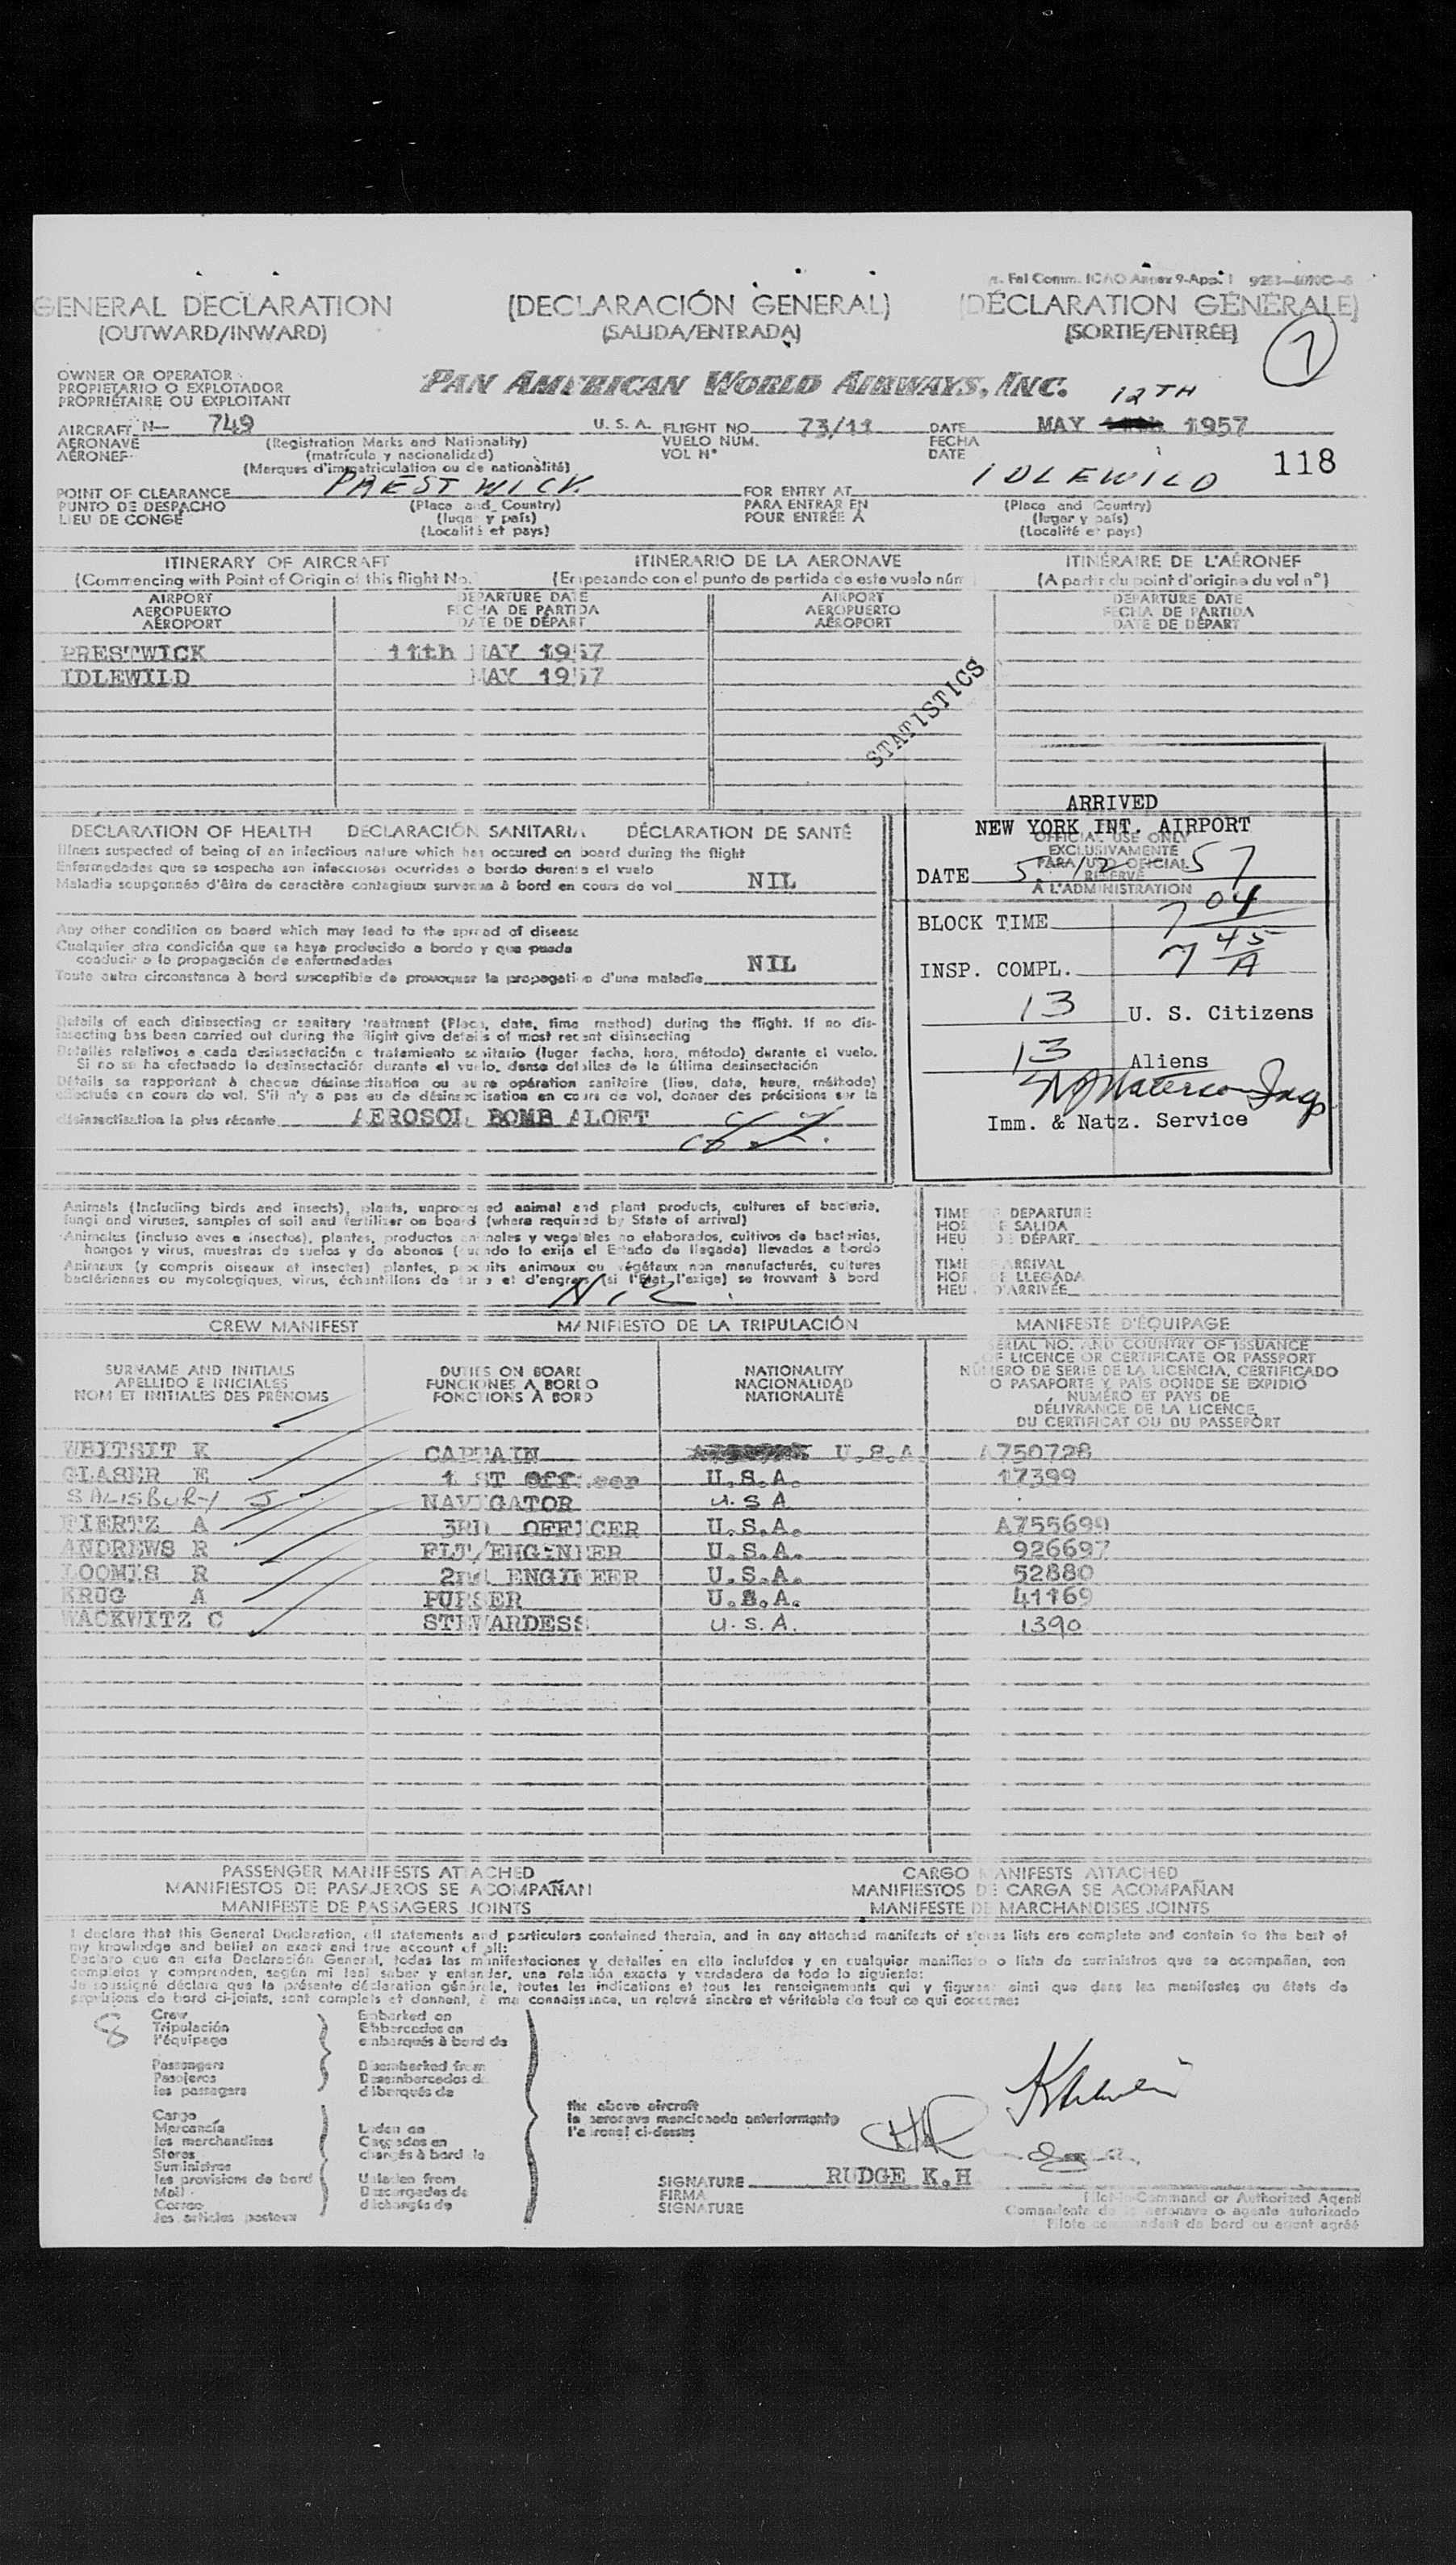 GENERAL DECLARATION (DECLARACIÓN GENERAL) (DÉCLARATION GÉNÉRALE)
(OUTWARD/INWARD) (SALIDA/ENTRADA) (SORTIE/ENTRÉE)
1
OWNER OR OPERATOR
PROPIETARIO O EXPLOTADOR
PROPRIÉTAIRE OU EXPLOITANT
PAN AMERICAN WORLD AIRWAYS, INC.
12TH
AIRCRAFT N- 749 U. S. A. FLIGHT NO 73/11 DATE MAY 1957
AERONAVE (Registration Marks and Nationality) VUELO NÚM. FECHA
AÉRONEF (matrícula y nacionalidad) VOL N° DATE
(Marques d'immatriculation ou de nationalité) 118
POINT OF CLEARANCE PRESTWICK FOR ENTRY AT IDLEWILD
PUNTO DE DESPACHO (Place and Country) PARA ENTRAR EN (Place and Country)
LIEU DE CONGÉ (lugar y país) POUR ENTRÉE À (lugar y país)
(Localité et pays) (Localité et pays)
ITINERARY OF AIRCRAFT ITINERARIO DE LA AERONAVE ITINÉRAIRE DE L'AÉRONEF
(Commencing with Point of Origin of this flight No.) (Empezando con el punto de partida de este vuelo núm (A partir du point d'origine du vol n°)
AIRPORT DEPARTURE DATE AIRPORT DEPARTURE DATE
AEROPUERTO FECHA DE PARTIDA AEROPUERTO FECHA DE PARTIDA
AÉROPORT DATE DE DÉPART AÉROPORT DATE DE DÉPART
PRESTWICK 11th MAY 1957
IDLEWILD MAY 1957
STATISTICS
ARRIVED
NEW YORK INT. AIRPORT
OFFICIAL USE ONLY
EXCLUSIVAMENTE
PARA USO OFICIAL
RÉSERVÉ
À L'ADMINISTRATION
DATE 5-12-57
BLOCK TIME 7 04
INSP. COMPL. 7 45 A
13 U. S. Citizens
13 Aliens
Imm. & Natz. Service
DECLARATION OF HEALTH DECLARACIÓN SANITARIA DÉCLARATION DE SANTÉ
Illness suspected of being of an infectious nature which has occured on board during the flight
Enfermedades que se sospecha son infecciosas ocurridas a bordo durante el vuelo
Maladie soupçonnée d'être de caractère contagieux survenue à bord en cours de vol NIL
Any other condition on board which may lead to the spread of disease
Cualquier otra condición que se haya producido a bordo y que pueda
conducir a la propagación de enfermedades
Toute autre circonstance à bord susceptible de provoquer la propagation d'une maladie NIL
Details of each disinsecting or sanitary treatment (Place, date, time method) during the flight. If no dis-
insecting has been carried out during the flight give details of most recent disinsecting
Detalles relativos a cada desinsectación o tratamiento sanitario (lugar fecha, hora, método) durante el vuelo.
Si no se ha efectuado la desinsectación durante el vuelo, dense detalles de la última desinsectación
Détails se rapportant à chaque désinsectisation ou autre opération sanitaire (lieu, date, heure, méthode)
effectuée en cours de vol. S'il n'y a pas eu de désinsectisation en cours de vol, donner des précisions sur la
désinsectisation la plus récente AEROSOL BOMB ALOFT
Animals (Including birds and insects), plants, unprocessed animal and plant products, cultures of bacteria,
fungi and viruses, samples of soil and fertilizer on board (where required by State of arrival)
Animales (incluso aves e insectos), plantes, productos animales y vegetales no elaborados, cultivos de bacterias,
hongos y virus, muestras de suelos y de abonos (cuando lo exija el Estado de llegada) llevados a bordo
Animaux (y compris oiseaux et insectes) plantes, produits animaux ou végétaux non manufacturés, cultures
bactériennes ou mycologiques, virus, échantillons de terre et d'engrais (si l'État l'exige) se trouvant à bord
NIL.
TIME OF DEPARTURE
HORA DE SALIDA
HEURE DE DÉPART
TIME OF ARRIVAL
HORA DE LLEGADA
HEURE D'ARRIVÉE
CREW MANIFEST MANIFIESTO DE LA TRIPULACIÓN MANIFESTE D'ÉQUIPAGE
SURNAME AND INITIALS DUTIES ON BOARD NATIONALITY SERIAL NO. AND COUNTRY OF ISSUANCE
APELLIDO E INICIALES FUNCIONES A BORDO NACIONALIDAD OF LICENCE OR CERTIFICATE OR PASSPORT
NOM ET INITIALES DES PRÉNOMS FONCTIONS À BORD NATIONALITÉ NÚMERO DE SERIE DE LA LICENCIA, CERTIFICADO
O PASAPORTE Y PAÍS DONDE SE EXPIDIÓ
NUMÉRO ET PAYS DE
DÉLIVRANCE DE LA LICENCE,
DU CERTIFICAT OU DU PASSEPORT
WHITSIT K CAPTAIN U.S.A. A750728
GLASER E 1 ST Officer U.S.A. 17399
SALISBURY J NAVIGATOR U.S.A
FIERTZ A 3RD OFFICER U.S.A. A755699
ANDREWS R FLT/ENGINEER U.S.A. 926697
LOOMIS R 2nd ENGINEER U.S.A. 52880
KRUG A PURSER U.S.A. 41169
WACKWITZ C STEWARDESS U.S.A. 1390
PASSENGER MANIFESTS ATTACHED CARGO MANIFESTS ATTACHED
MANIFIESTOS DE PASAJEROS SE ACOMPAÑAN MANIFIESTOS DE CARGA SE ACOMPAÑAN
MANIFESTE DE PASSAGERS JOINTS MANIFESTE DE MARCHANDISES JOINTS
I declare that this General Declaration, all statements and particulars contained therein, and in any attached manifests of stores lists are complete and contain to the best of
my knowledge and belief an exact and true account of all:
Declaro que en esta Declaración General, todas las manifestaciones y detalles en ella incluídos y en cualquier manifiesto o lista de suministros que se acompañan, son
completos y comprenden, según mi leal saber y entender, una relación exacta y verdadera de todo lo siguiente:
Je soussigné déclare que la présente déclaration générale, toutes les indications et tous les renseignements qui y figurent ainsi que dans les manifestes ou états de
provisions de bord ci-joints, sont complets et donnent, à ma connaissance, un relevé sincère et véritable de tout ce qui concerne:
8 Crew Embarked on
Tripulación Embarcados en
l'équipage embarqués à bord de
Passengers Disembarked from
Pasajeros Desembarcados de
les passagers débarqués de
the above aircraft
la aeronave mencionada anteriormente
l'aéronef ci-dessus
Cargo
Mercancía Laden on
les marchandises Cargados en
Stores chargés à bord de
Suministros
les provisions de bord Unladen from
Mail Descargados de
Correo déchargés de
les articles postaux
SIGNATURE RUDGE K.H
FIRMA
SIGNATURE
Pilot-in-Command or Authorized Agent
Comandante de la aeronave o agente autorizado
Pilote commandant de bord ou agent agréé